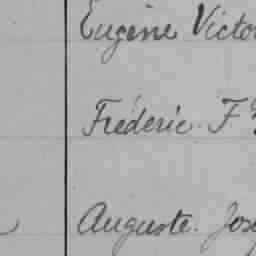 Eugène Victo
Fréderic. F
Auguste. Jos